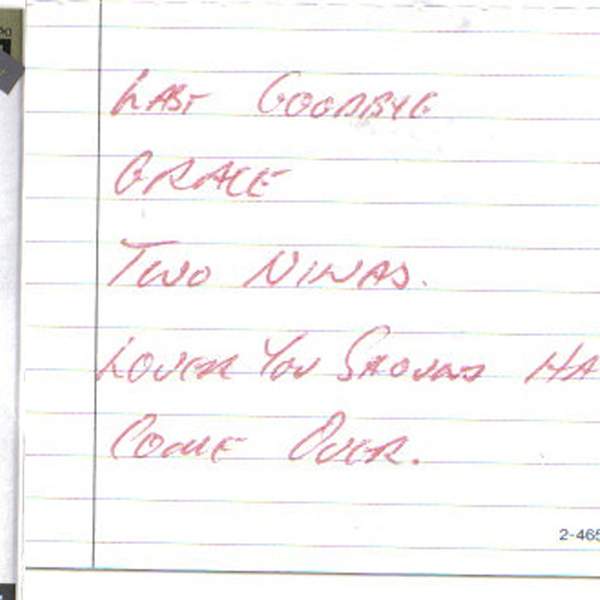 LAST GOODBYE
GRACE
TWO NINAS.
LOVER YOU SHOULD HA
COME OVER.
2-465